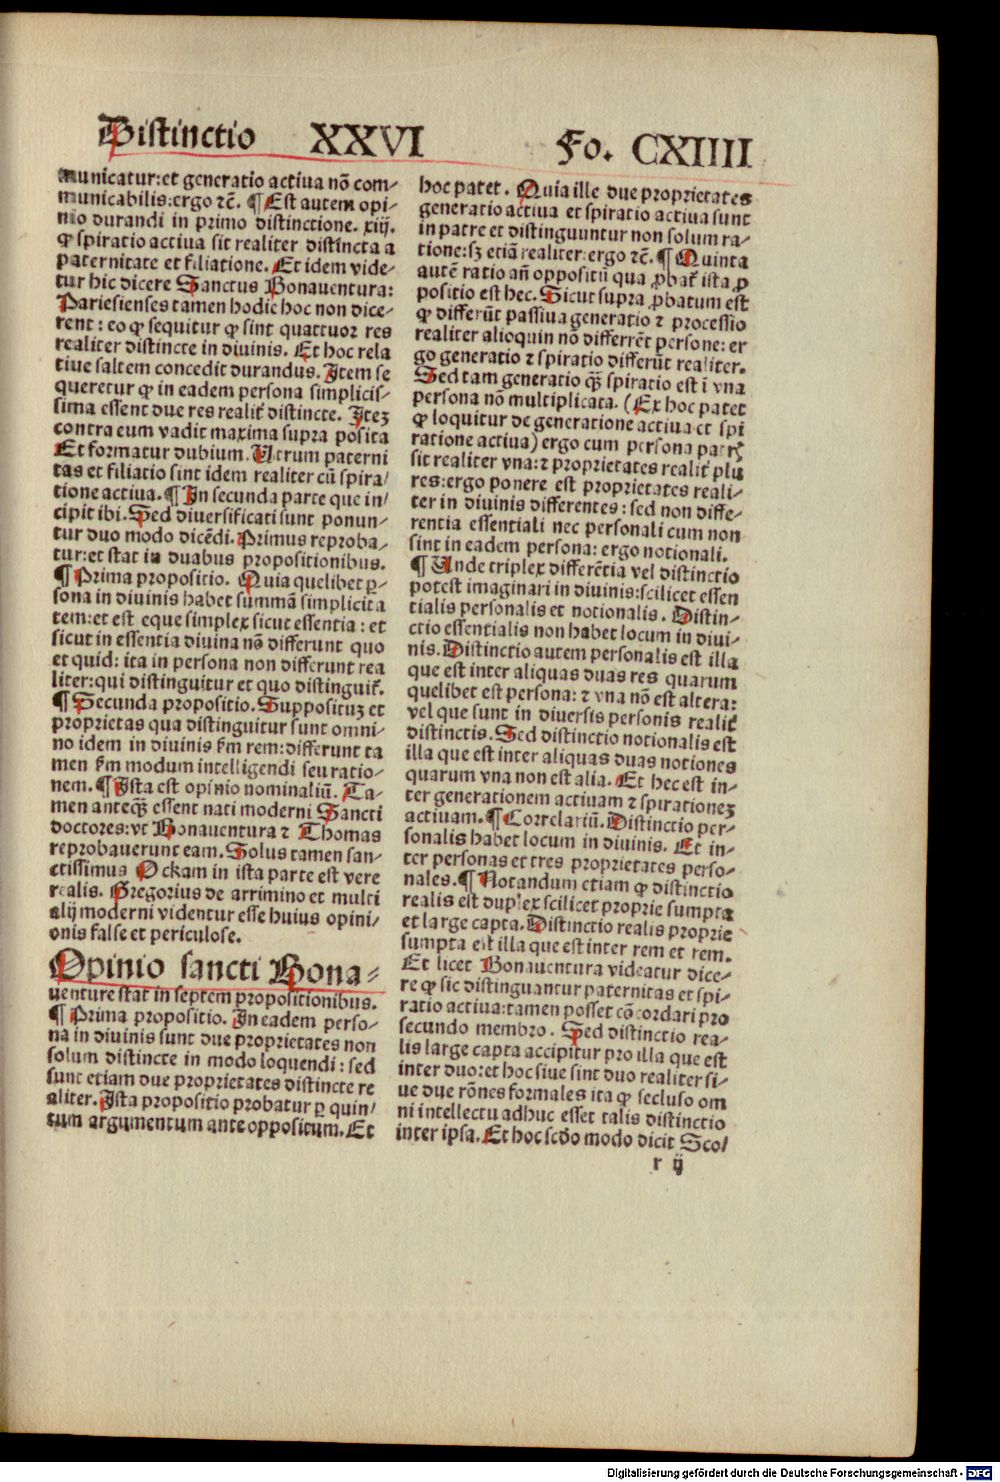 Distinctio XXVI Fo. CXIIII
municatur:et generatio actiua nõ com⸗
municabilis:ergo ⁊c̃. ¶ Est autem opi⸗
nio durandi in primo distinctione. xiij.
ꝙ spiratio actiua sit realiter distincta a
paternitate et filiatione. Et idem vide⸗
tur hic dicere Sanctus Bonauentura:
Pariesienses tamen hodie hoc non dice⸗
rent: eo ꝙ sequitur ꝙ sint quattuor res
realiter distincte in diuinis. Et hoc rela
tiue saltem concedit durandus. Item se
queretur ꝙ in eadem persona simplicis⸗
sima essent due res realit̃ distincte. Iteꝫ
contra eum vadit maxima supra posita
Et formatur dubium. Utrum paterni
tas et filiatio sint idem realiter cũ spira⸗
tione actiua. ¶ In secunda parte que in⸗
cipit ibi. Sed diuersificati sunt ponun⸗
tur duo modo dicẽdi. Primus reproba⸗
tur:et stat in duabus propositionibus.
¶ Prima propositio. Quia quelibet ꝑ⸗
sona in diuinis habet summã simplicita
tem:et est eque simplex sicut essentia: et
sicut in essentia diuina nõ differunt quo
et quid: ita in persona non differunt rea
liter:qui distinguitur et quo distinguit̃.
¶ Secunda propositio. Supposituꝫ et
proprietas qua distinguitur sunt omni⸗
no idem in diuinis ẜm rem:differunt ta
men ẜm modum intelligendi seu ratio⸗
nem. ¶ Ista est opinio nominaliũ. Ta⸗
men anteq̃ꝫ essent nati moderni Sancti
doctores:vt Bonauentura ⁊ Thomas
reprobauerunt eam. Solus tamen san⸗
ctissimus Ockam in ista parte est vere
realis. Gregorius de arrimino et multi
alij moderni videntur esse huius opini⸗
onis false et periculose.
Opinio sancti Bona⸗
uenture stat in septem propositionibus.
¶ Prima propositio. In eadem perso⸗
na in diuinis sunt due proprietates non
solum distincte in modo loquendi: sed
sunt etiam due proprietates distincte re
aliter. Ista propositio probatur ꝑ quin⸗
tum argumentum ante oppositum. Et
hoc patet. Quia ille due proprietates
generatio actiua et spiratio actiua sunt
in patre et distinguuntur non solum ra⸗
tione:sꝫ etiã realiter:ergo ⁊c̃. ¶ Quinta
autẽ ratio añ oppositũ qua ꝓbat̃ ista ꝓ
positio est hec. Sicut supra ꝓbatum est
ꝙ differũt passiua generatio ⁊ processio
realiter alioquin nõ differrẽt persone: er
go generatio ⁊ spiratio differũt realiter.
Sed tam generatio q̃ꝫ spiratio est ĩ vna
persona nõ multiplicata. (Ex hoc patet
ꝙ loquitur de generatione actiua et spi
ratione actiua) ergo cum persona patrꝭ
sit realiter vna:⁊ proprietates realit̃ plu
res:ergo ponere est proprietates reali⸗
ter in diuinis differentes: sed non diffe⸗
rentia essentiali nec personali cum non
sint in eadem persona: ergo notionali.
¶ Unde triplex differẽtia vel distinctio
potest imaginari in diuinis:scilicet essen
tialis personalis et notionalis. Distin⸗
ctio essentialis non habet locum in diui⸗
nis. Distinctio autem personalis est illa
que est inter aliquas duas res quarum
quelibet est persona: ⁊ vna nõ est altera:
vel que sunt in diuersis personis realit̃
distinctis. Sed distinctio notionalis est
illa que est inter aliquas duas notiones
quarum vna non est alia. Et hec est in⸗
ter generationem actiuam ⁊ spirationeꝫ
actiuam. ¶ Correlariũ. Distinctio per⸗
sonalis habet locum in diuinis. Et in⸗
ter personas et tres proprietates perso⸗
nales. ¶ Notandum etiam ꝙ distinctio
realis est duplex scilicet proprie sumpta
et large capta. Distinctio realis proprie
sumpta est illa que est inter rem et rem.
Et licet Bonauentura videatur dice⸗
re ꝙ sic distinguantur paternitas et spi⸗
ratio actiua:tamen posset cõcordari pro
secundo membro. Sed distinctio rea⸗
lis large capta accipitur pro illa que est
inter duo:et hoc siue sint duo realiter si⸗
ue due rõnes formales ita ꝙ secluso om
ni intellectu adhuc esset talis distinctio
inter ipsa. Et hoc scdo modo dicit Scot⸗
r ij
Digitalisierung gefördert durch die Deutsche Forschungsgemeinschaft - DFG